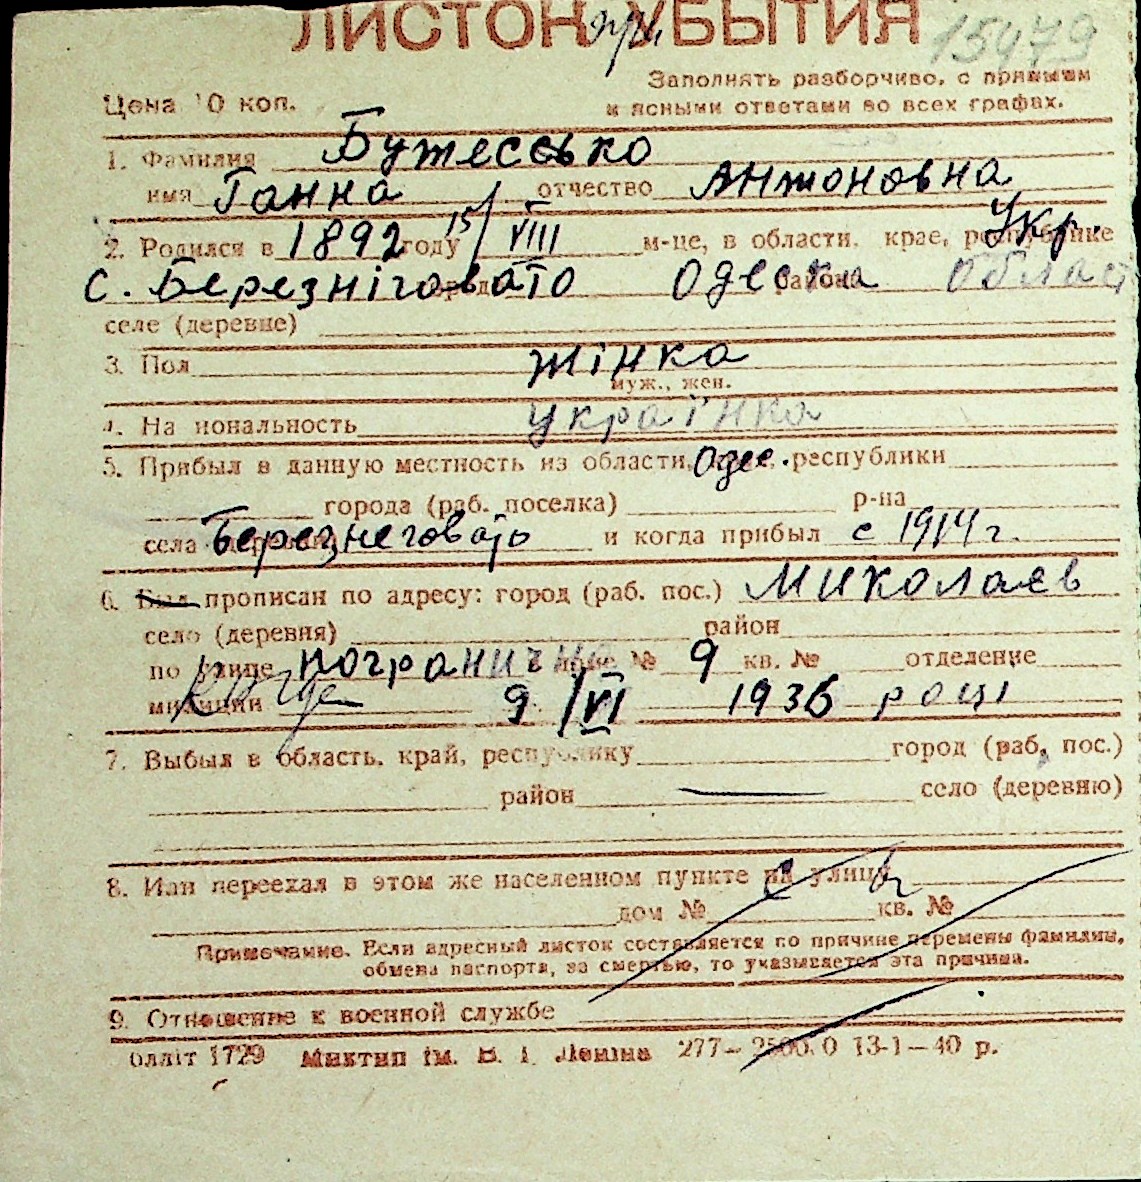 ЛИСТОК УБЫТИЯ при 15479
Заполнять разборчиво, с прямыми
Цена 10 коп. и ясными ответами во всех графах.
1. Фамилия Бутесько
имя Ганна отчество Антоновна
2. Родился в 1892 году 15/VIII м-це, в области, крае, республике Укр.
с. Березніговато Одеска района област
селе (деревне)
3. Пол жінка
муж., жен.
4. На иональность українка
5. Прибыл в данную местность из области, Одес. республики
города (раб. поселка) р-на
села Березнеговато и когда прибыл с 1914 г.
6. Был прописан по адресу: город (раб. пос.) Миколаєв
село (деревня) район
по улице погранична доме № 9 кв. № отделение
милиции 9/VI 1936 році
7. Выбыл в область, край, республику город (раб. пос.)
район село (деревню)
8. Или переехал в этом же населенном пункте на улицу
дом № кв. №
Примечание. Если адресный листок составляется по причине перемены фамилии,
обмена паспорта, за смертью, то указывается эта причина.
9. Отношение к военной службе
оллiт 1729 Миктип iм. В. I. Ленiна 277—2500.0 13-1—40 р.